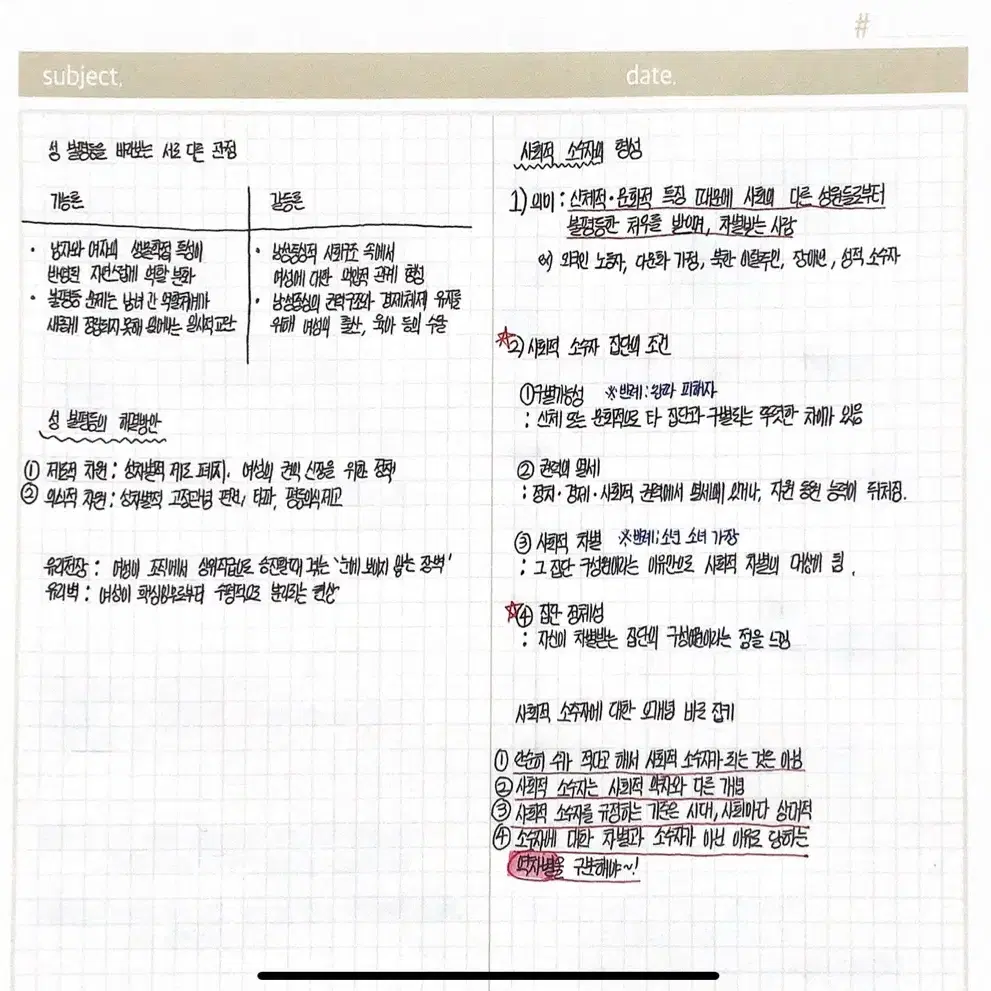 #
subject.
date.
성 불평등을 바라보는 서로 다른 관점
기능론
갈등론
• 남자와 여자의 생물학적 특성이
반영된 자연스럽게 역할 분화
• 불평등 문제는 남녀 간 역할체계가
새롭게 정립되지 못해 일어나는 일시적 교란
• 남성중심적 사회구조 속에서
여성에 대한 억압적 관계 형성
• 남성중심의 권력구조와 경제체제 유지를
위해 여성의 출산, 육아 등의 수단
성 불평등의 해결방안
① 제도적 차원 : 성차별적 제도 폐지, 여성의 권익 신장을 위한 정책
② 의식적 차원 : 성차별적 고정관념 편견, 타파, 평등의식제고
유리천장 : 여성이 조직에서 상위직급으로 승진할때 겪는 '눈에 보이지 않는 장벽'
유리벽 : 여성이 핵심업무로부터 수평적으로 분리되는 현상
사회적 소수자의 형성
1) 의미 : 신체적·문화적 특징 때문에 사회의 다른 성원들로부터
불평등한 처우를 받으며, 차별받는 사람
ex) 외국인 노동자, 다문화 가정, 북한 이탈주민, 장애인, 성적 소수자
☆2) 사회적 소수자 집단의 조건
①구별가능성 ※반례: 왕따 피해자
: 신체 또는 문화적으로 타 집단과 구별되는 뚜렷한 차이가 있음
② 권력의 열세
: 정치·경제·사회적 권력에서 열세에 있거나, 자원 동원 능력이 뒤처짐.
③ 사회적 차별 ※반례: 소년 소녀 가장
: 그 집단 구성원이라는 이유만으로 사회적 차별의 대상이 됨.
☆④ 집단 정체성
: 자신이 차별받는 집단의 구성원이라는 점을 느낌
사회적 소수자에 대한 오개념 바로 잡기
① 단순히 수가 적다고 해서 사회적 소수자가 되는 것은 아님
② 사회적 소수자는 사회적 약자와 다른 개념
③ 사회적 소수자를 규정하는 기준은 시대, 사회마다 상대적
④ 소수자에 대한 차별과 소수자가 아닌 이유로 당하는
역차별을 구분해야~!